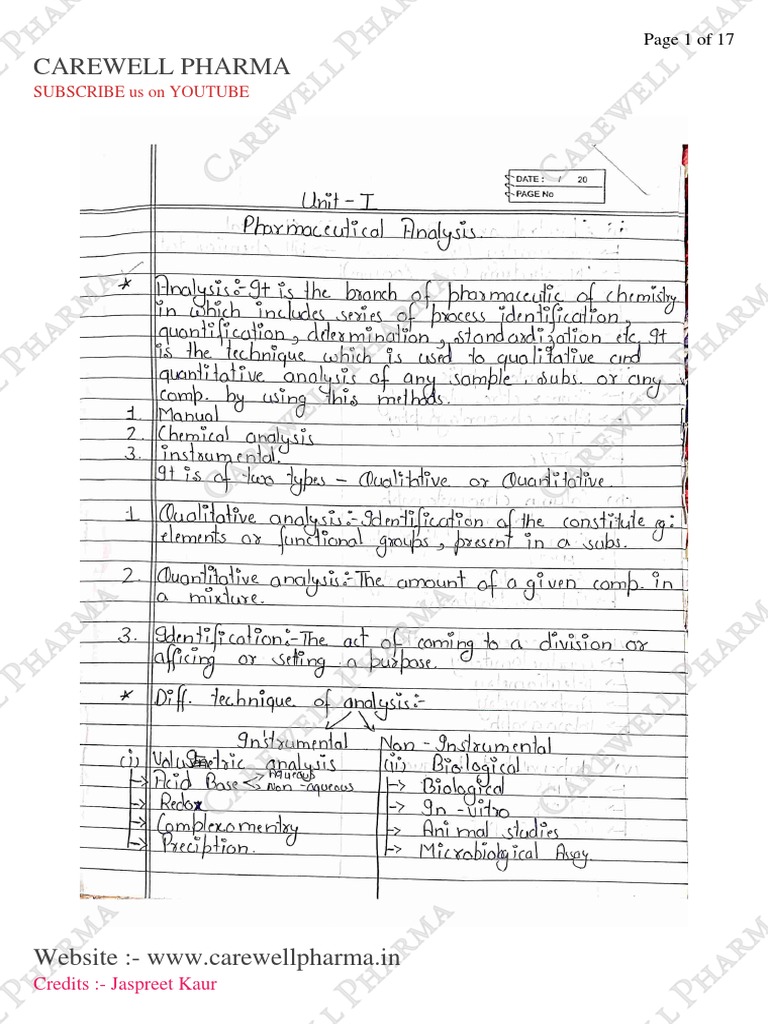 Page 1 of 17
CAREWELL PHARMA
SUBSCRIBE us on YOUTUBE
DATE : / 20
PAGE No
Unit - I
Pharmaceutical Analysis.
* Analysis:- It is the branch of pharmaceutic of chemistry
in which includes series of process identification,
quantification, determination, standardization etc. It
is the technique which is used to qualitative and
quantitative analysis of any sample, subs. or any
comp. by using this methods.
1. Manual
2. Chemical analysis
3. instrumental.
It is of two types - Qualitative or Quantitative
1 Qualitative analysis:- Identification of the constitute eg:
elements or functional groups, present in a subs.
2. Quantitative analysis:- The amount of a given comp. in
a mixture.
3. Identification:- The act of coming to a division or
afficing or seting a purpose.
* Diff. technique of analysis:-
Instrumental Non - Instrumental
(i) Volumetric analysis (ii) Biological
-> Acid Base < Aqueous -> Biological
Non - aqueous
-> Redox -> In - vitro
-> Complexomentry -> Animal studies
-> Preciption. -> Microbiological Assay.
Website :- www.carewellpharma.in
Credits :- Jaspreet Kaur
CAREWELL PHARMA